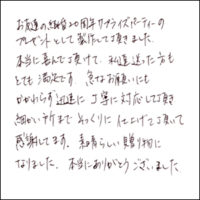 お友達の結婚20周年サプライズパーティーの
プレゼントとして製作して頂きました。
本当に喜んで頂けて、私達送った方も
とても満足です 急なお願いにも
かかわらず迅速に丁寧に対応して頂き
細かい所までそっくりに仕上げて頂いて
感謝してます。素晴らしい贈り物に
なりました。本当にありがとうございました